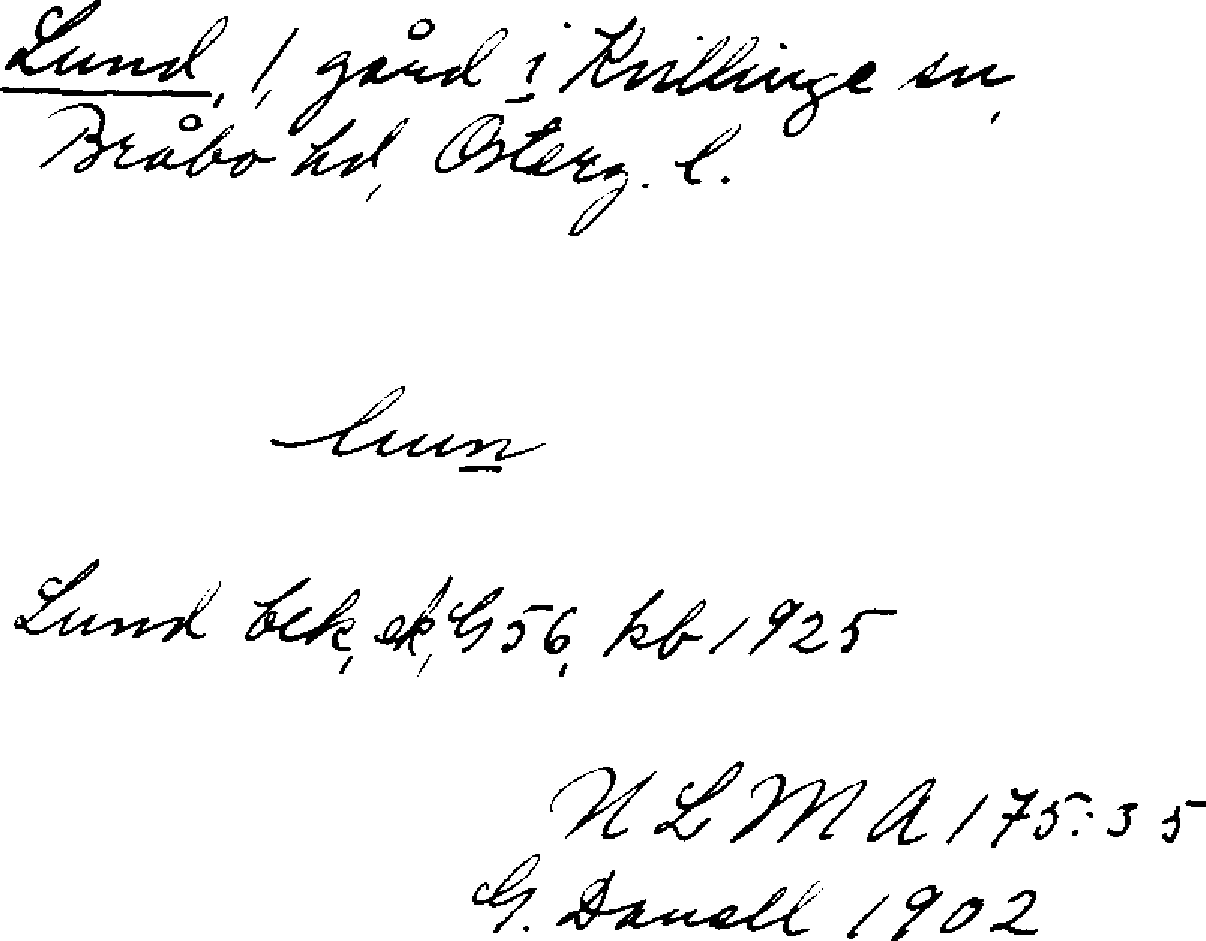 Lund, 1, gård i Kvillinge sn,
Bråbo hd, Österg. l.
lun
Lund bek, ek, G 56, kb 1925
U L M A 175:35
G. Danell 1902